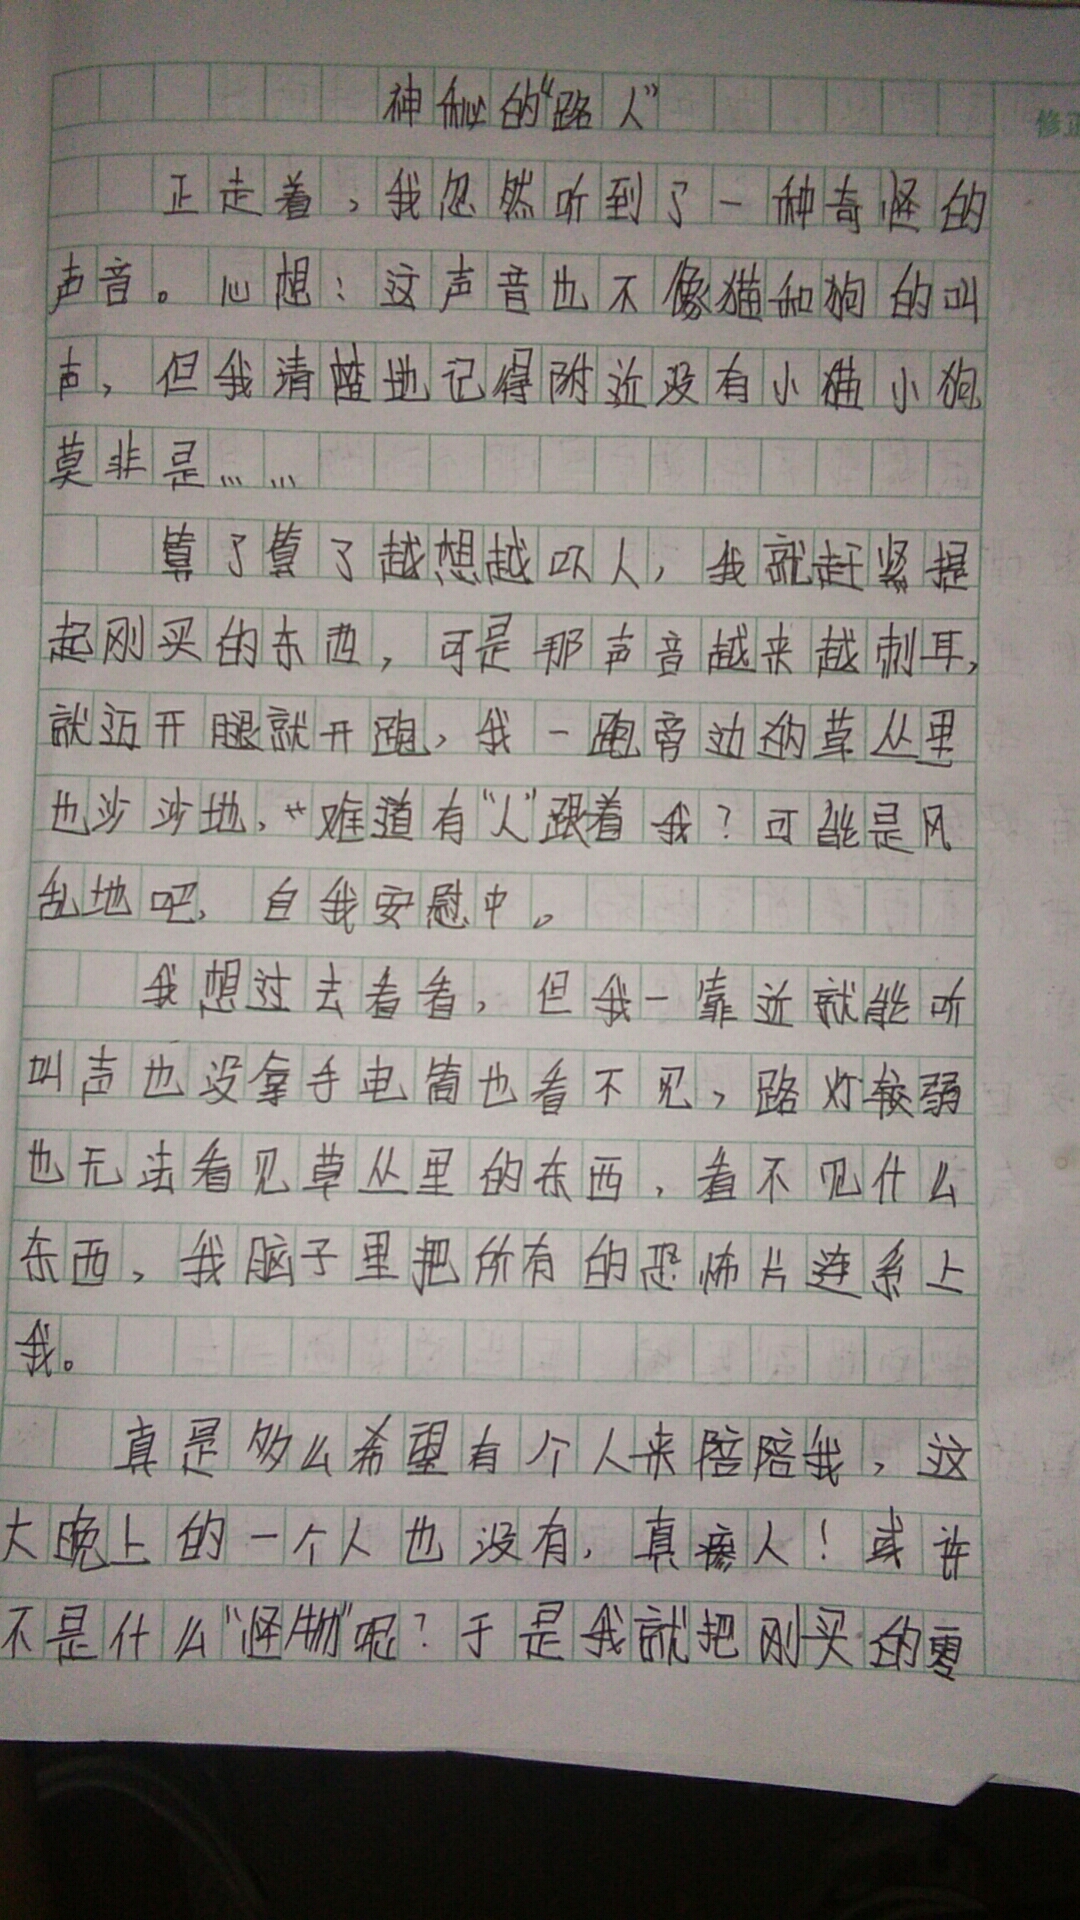 神秘的“路人”
正走着，我忽然听到了一种奇怪的
声音。心想：这声音也不像猫和狗的叫
声，但我清楚地记得附近没有小猫小狗
莫非是……
算了算了越想越吓人，我就赶紧提
起刚买的东西，可是那声音越来越刺耳，
就迈开腿就开跑，我一跑旁边的草丛里
也沙沙地，“难道有“人”跟着我？可能是风
乱地吧，自我安慰中。
我想过去看看，但我一靠近就能听
叫声也没拿手电筒也看不见，路灯较弱
也无法看见草丛里的东西，看不见什么
东西，我脑子里把所有的恐怖片连系上
我。
真是多么希望有个人来陪陪我，这
大晚上的一个人也没有，真瘆人！或许
不是什么“怪物”呢？于是我就把刚买的零
修正